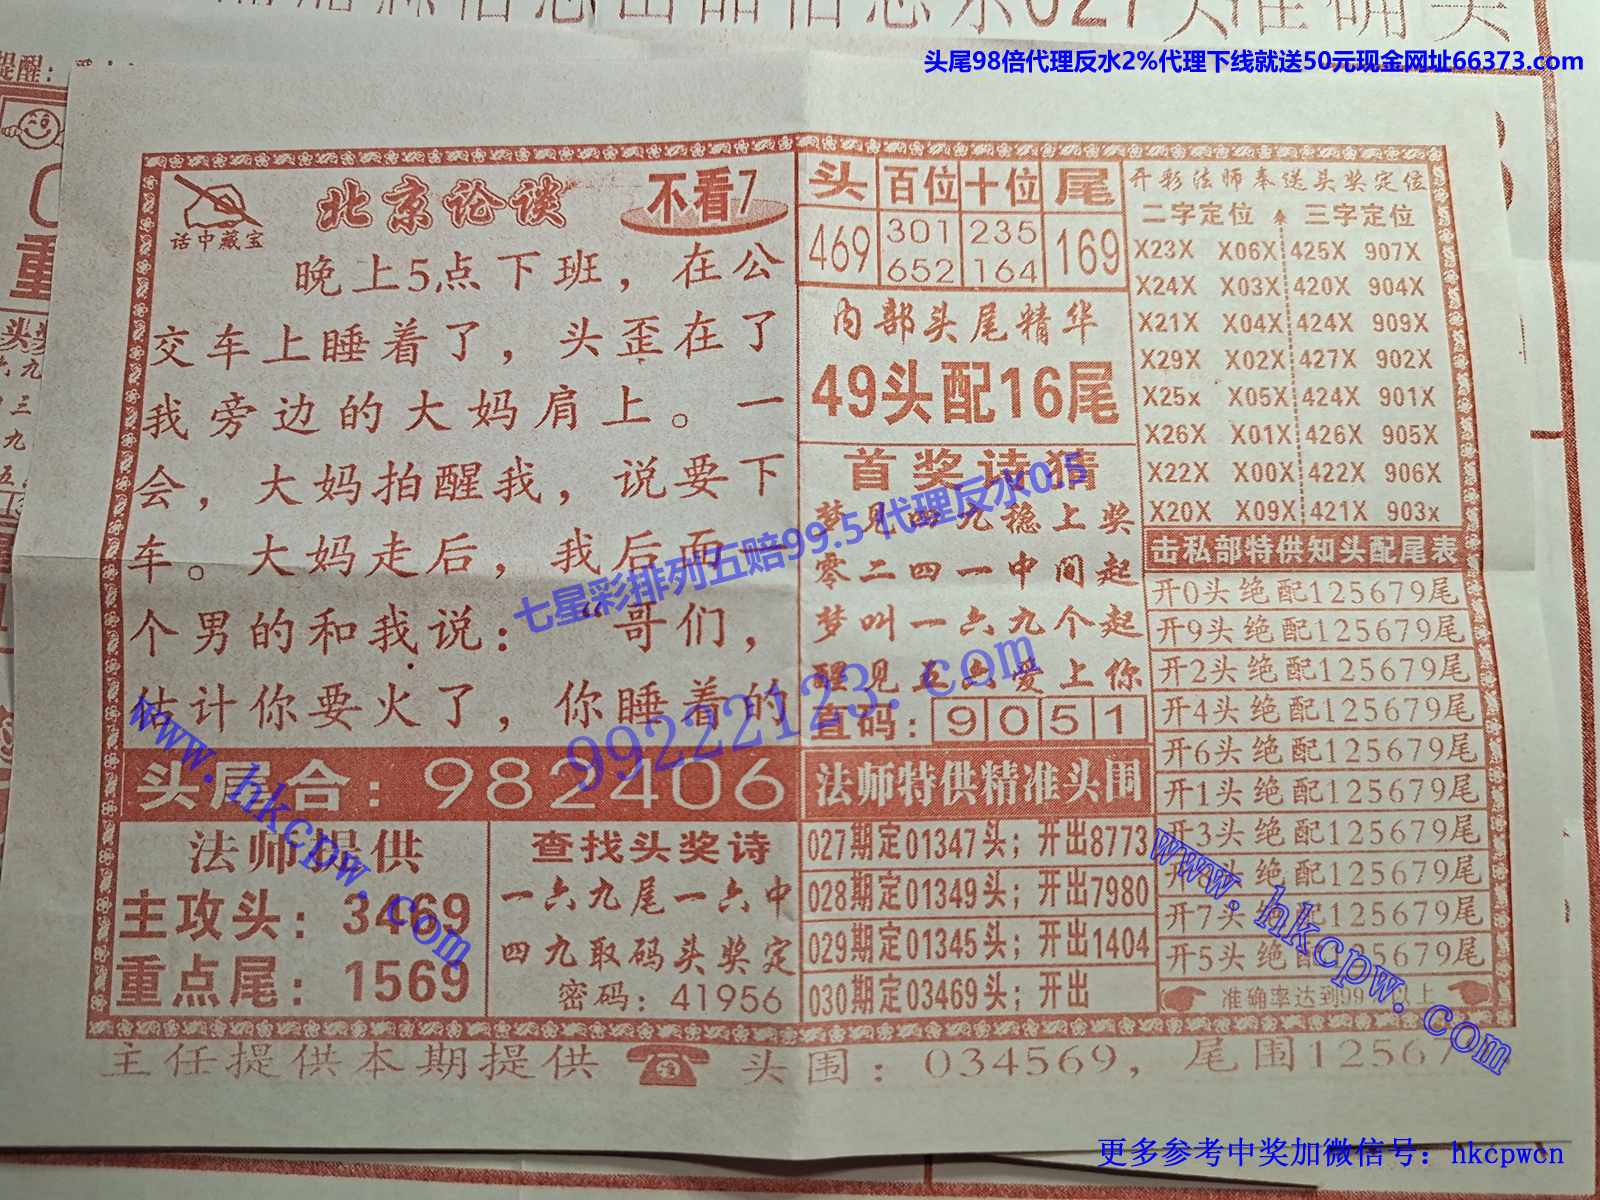 头尾98倍代理反水2%代理下线就送50元现金网址66373.com
提醒：
话中藏宝
北京论谈
不看7
晚上5点下班，在公
交车上睡着了，头歪在了
我旁边的大妈肩上。一
会，大妈拍醒我，说要下
车。大妈走后，我后面一
个男的和我说：“哥们，
估计你要火了，你睡着的
头尾合：982406
法师提供
主攻头：3469
重点尾：1569
查找头奖诗
一六九尾一六中
四九取码头奖定
密码：41956
头 百位 十位 尾
469 301 235 169
652 164
内部头尾精华
49头配16尾
首奖诗猜
梦见四九稳上奖
零二四一中间起
梦叫一六九个起
醒见五六爱上你
直码：9051
法师特供精准头围
027期定01347头；开出8773
028期定01349头；开出7980
029期定01345头；开出1404
030期定03469头；开出
开彩法师奉送头奖定位
二字定位 三字定位
X23X X06X 425X 907X
X24X X03X 420X 904X
X21X X04X 424X 909X
X29X X02X 427X 902X
X25x X05X 424X 901X
X26X X01X 426X 905X
X22X X00X 422X 906X
X20X X09X 421X 903x
击私部特供知头配尾表
开0头绝配125679尾
开9头绝配125679尾
开2头绝配125679尾
开4头绝配125679尾
开6头绝配125679尾
开1头绝配125679尾
开3头绝配125679尾
开8头绝配125679尾
开7头绝配125679尾
开5头绝配125679尾
准确率达到99%以上
主任提供本期提供 头围：034569，尾围12567
七星彩排列五赔99.5 代理反水0.5
99222123.com
www.hkcpw.com
www.hkcpw.com
更多参考中奖加微信号：hkcpwcn